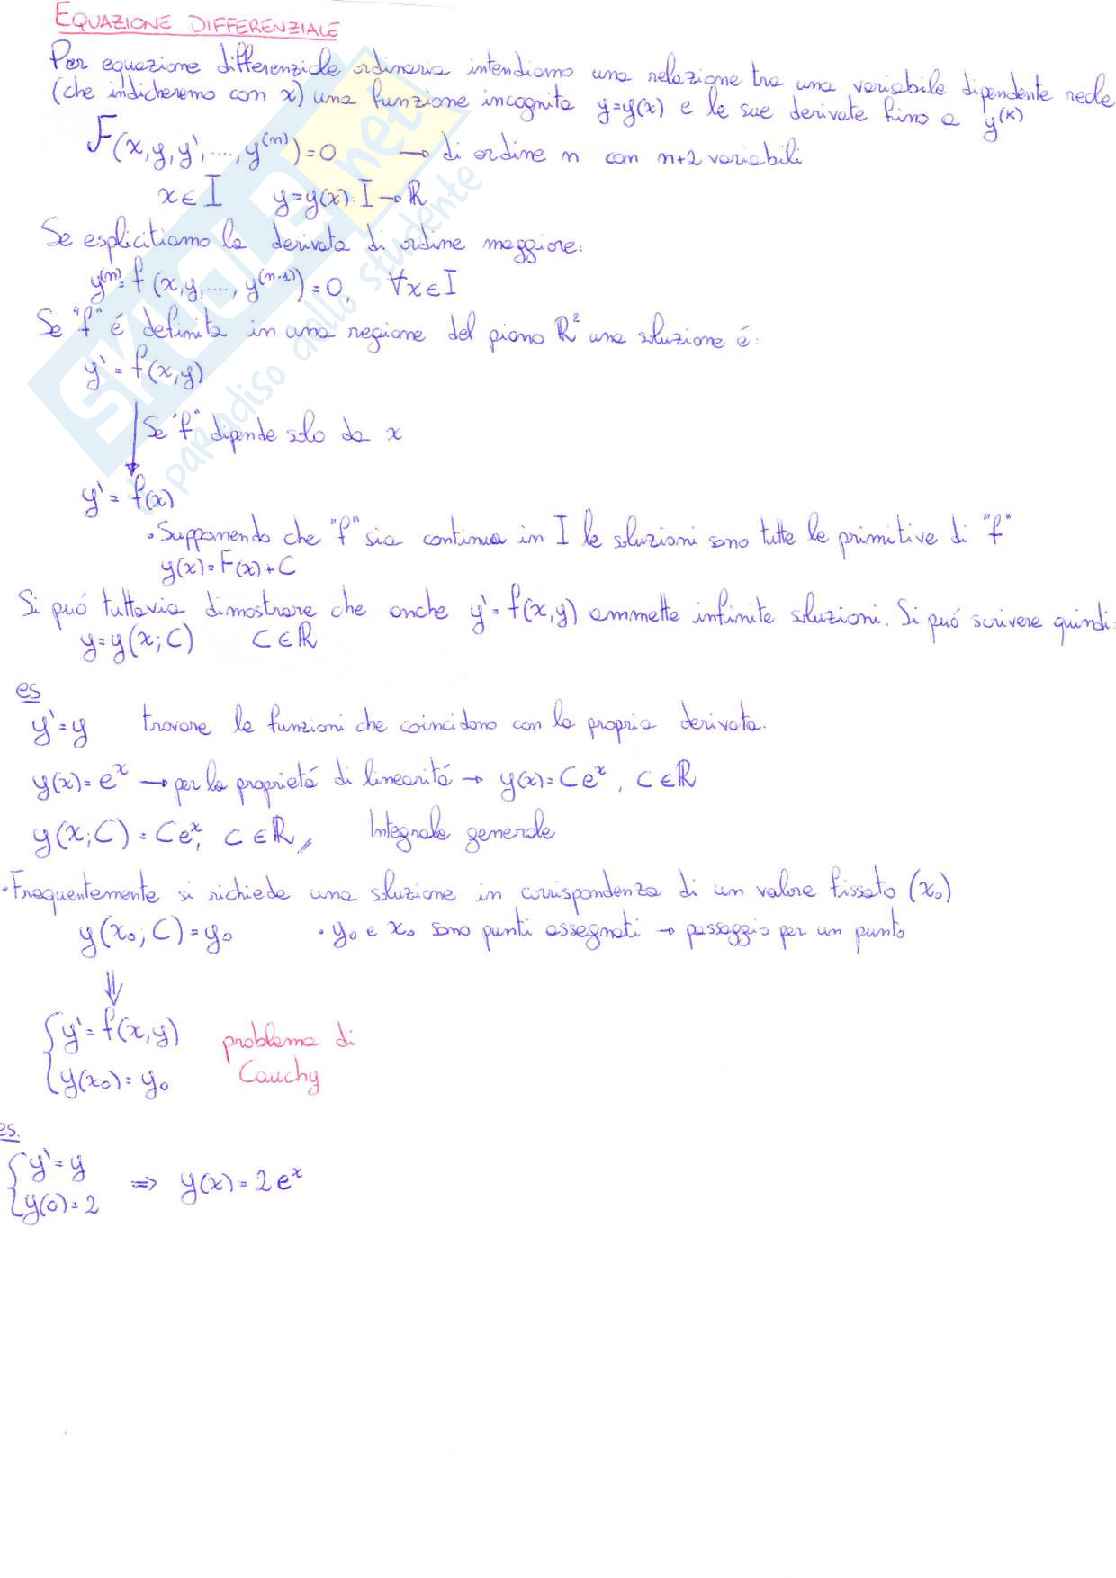 EQUAZIONE DIFFERENZIALE
Per equazione differenziale ordinaria intendiamo una relazione tra una variabile dipendente reale
(che indicheremo con x) una funzione incognita y=y(x) e le sue derivate fino a y^(k)
F(x,y,y',....,y^(n))=0 → di ordine n con n+2 variabili
x∈I y=y(x): I→R
Se esplicitiamo la derivata di ordine maggiore:
y^(n)=f(x,y,....,y^(n-1))=0, ∀x∈I
Se "f" é definita in una regione del piano R² una soluzione é:
y'=f(x,y)
Se "f" dipende solo da x
y'=f(x)
• Supponendo che "f" sia continua in I le soluzioni sono tutte le primitive di "f"
y(x)=F(x)+C
Si puó tuttavia dimostrare che anche y'=f(x,y) ammette infinite soluzioni. Si puó scrivere quindi:
y=y(x;C) C∈R
es
y'=y trovare le funzioni che coincidono con la propria derivata.
y(x)=e^x → per la proprietá di linearitá → y(x)=Ce^x, C∈R
y(x;C)=Ce^x, C∈R,, Integrale generale
• Frequentemente si richiede una soluzione in corrispondenza di un valore fissato (x₀)
y(x₀;C)=y₀ • y₀ e x₀ sono punti assegnati → passaggio per un punto
⇓
{y'=f(x,y) problema di
{y(x₀)=y₀ Cauchy
es.
{y'=y
{y(0)=2 ⇒ y(x)=2e^x
SKUOLA.net
paradiso dello studente